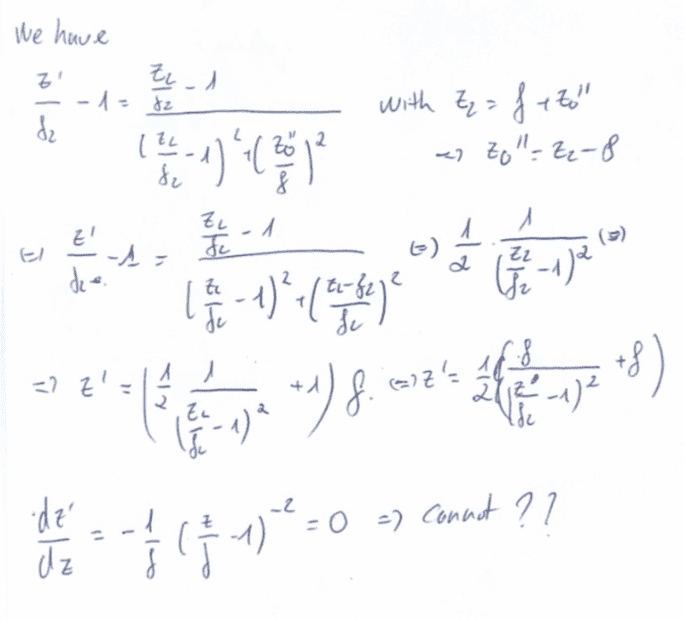 We have
z'/f₂ - 1 = (z₂/f₂ - 1) / ((z₂/f₂ - 1)² + (z₀''/f)²) with z₂ = f + z₀''
=> z₀'' = z₂ - f
(=) z'/f₂ - 1 = (z₂/f₂ - 1) / ((z₂/f₂ - 1)² + ((z₂ - f₂)/f₂)²) (=) 1/2 · 1/(z₂/f₂ - 1)² (=)
=> z' = (1/2 1/(z₂/f₂ - 1)² + 1) f. (=> z' = 1/2 (f/(z₂/f₂ - 1)² + f)
dz'/dz = - 1/f (z/f - 1)⁻² = 0 => cannot ??